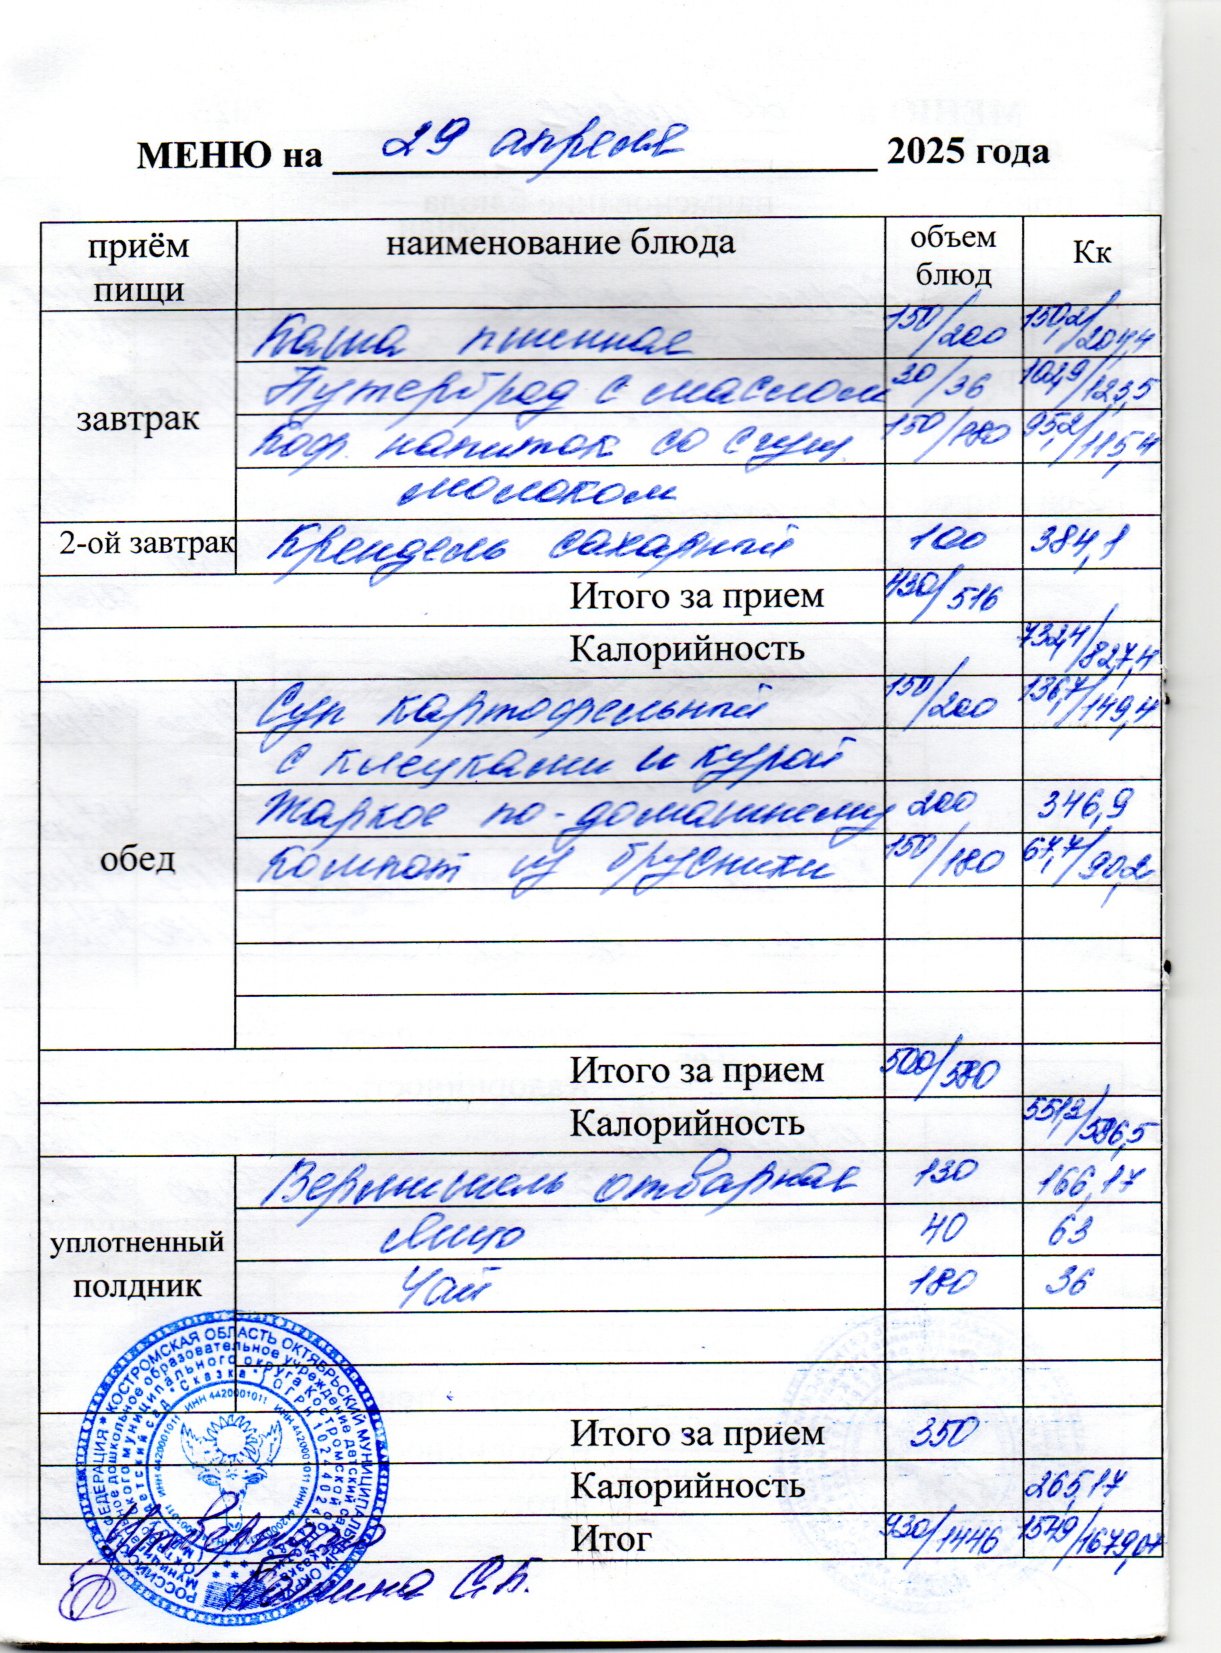 МЕНЮ на 29 апреля 2025 года
приём пищи наименование блюда объем блюд Кк
завтрак
Каша пшенная 150/200 150,2/204,4
Бутерброд с маслом 30/36 102,9/123,5
Коф. напиток со сгущ. 150/180 95,2/115,4
молоком
2-ой завтрак Крендель сахарный 100 384,1
Итого за прием 430/516
Калорийность 732,4/827,4
обед
Суп картофельный 150/200 136,7/149,4
с клецками и курой
Жаркое по-домашнему 200 346,9
Компот из брусники 150/180 67,7/90,2
Итого за прием 500/580
Калорийность 551,3/586,5
уплотненный полдник
Вермишель отварная 130 166,17
Яйцо 40 63
Чай 180 36
Итого за прием 350
Калорийность 265,17
Итог 930/1446 1549/1679,07
РОССИЙСКАЯ ФЕДЕРАЦИЯ * КОСТРОМСКАЯ ОБЛАСТЬ ОКТЯБРЬСКИЙ МУНИЦИПАЛЬНЫЙ ОКРУГ
дошкольное образовательное учреждение детский сад
муниципального округа Костромской области
детский сад "Сказка"
ИНН 4420001011 ИНН 4420001011 ИНН 4420001011
С.В.